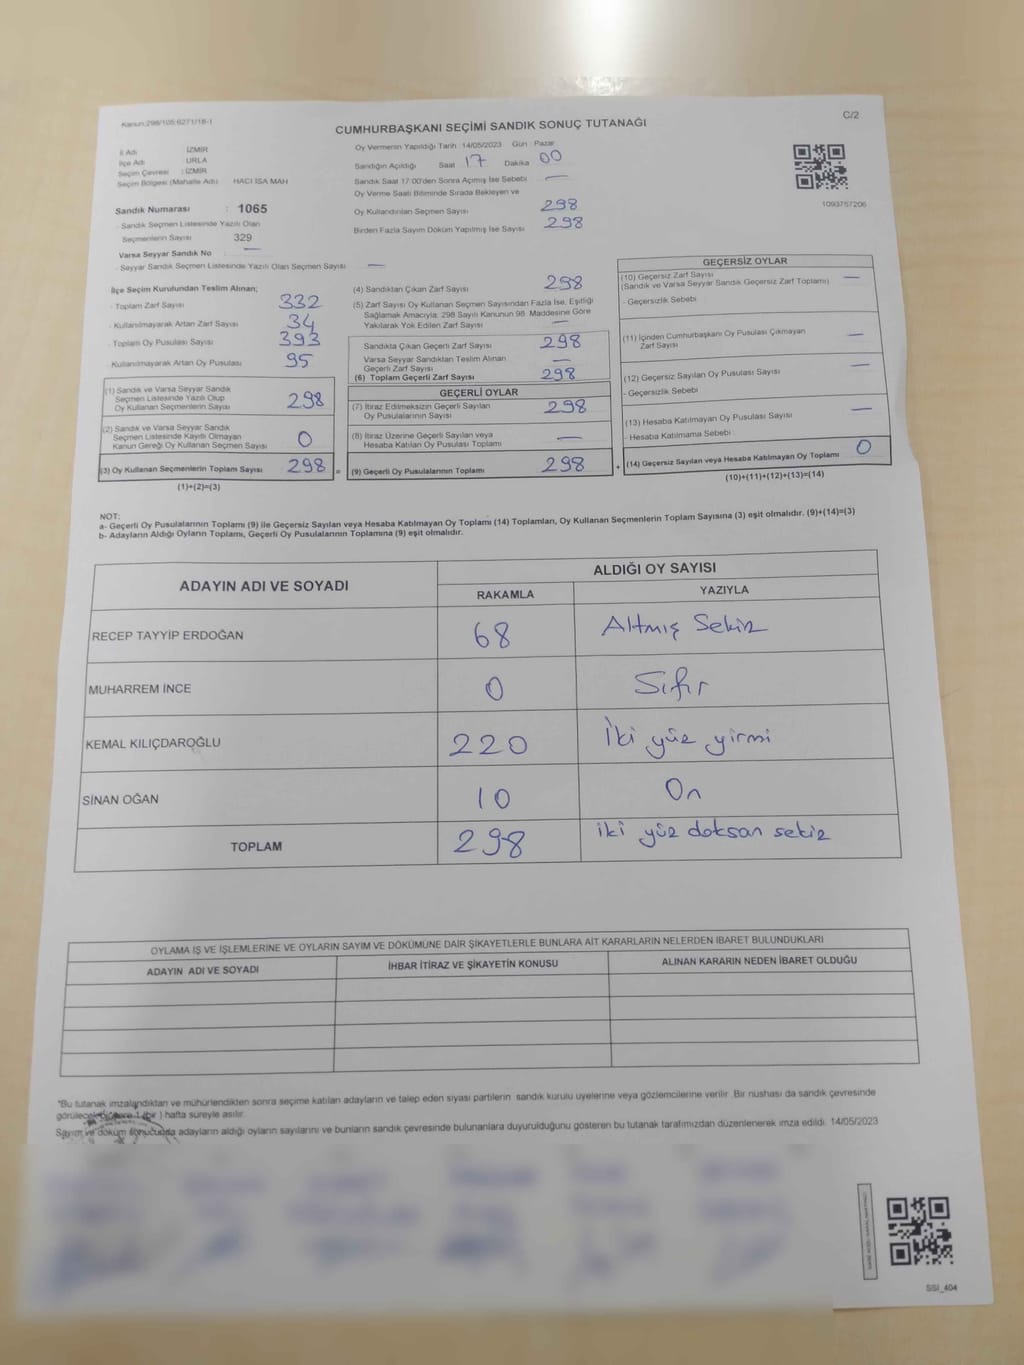 Kanun:298/105;6271/18-1
C/2
CUMHURBAŞKANI SEÇİMİ SANDIK SONUÇ TUTANAĞI
İl Adı : İZMİR
İlçe Adı : URLA
Seçim Çevresi : İZMİR
Seçim Bölgesi (Mahalle Adı) HACI İSA MAH
Sandık Numarası : 1065
- Sandık Seçmen Listesinde Yazılı Olan
Seçmenlerin Sayısı 329
Varsa Seyyar Sandık No —
- Seyyar Sandık Seçmen Listesinde Yazılı Olan Seçmen Sayısı —
Oy Vermenin Yapıldığı Tarih : 14/05/2023 Gün : Pazar
Sandığın Açıldığı Saat 17 Dakika 00
Sandık Saat 17:00'den Sonra Açımış İse Sebebi —
Oy Verme Saati Bitiminde Sırada Bekleyen ve
Oy Kullandırılan Seçmen Sayısı 298
Birden Fazla Sayım Döküm Yapılmış İse Sayısı 298
1093757206
İlçe Seçim Kurulundan Teslim Alınan;
- Toplam Zarf Sayısı 332
- Kullanılmayarak Artan Zarf Sayısı 34
- Toplam Oy Pusulası Sayısı 393
- Kullanılmayarak Artan Oy Pusulası 95
(1) Sandık ve Varsa Seyyar Sandık
Seçmen Listesinde Yazılı Olup
Oy Kullanan Seçmenlerin Sayısı 298
(2) Sandık ve Varsa Seyyar Sandık
Seçmen Listesinde Kayıtlı Olmayan
Kanun Gereği Oy Kullanan Seçmen Sayısı 0
(3) Oy Kullanan Seçmenlerin Toplam Sayısı 298 =
(1)+(2)=(3)
(4) Sandıktan Çıkan Zarf Sayısı 298
(5) Zarf Sayısı Oy Kullanan Seçmen Sayısından Fazla İse, Eşitliği
Sağlamak Amacıyla; 298 Sayılı Kanunun 98. Maddesine Göre
Yakılarak Yok Edilen Zarf Sayısı —
Sandıkta Çıkan Geçerli Zarf Sayısı 298
Varsa Seyyar Sandıktan Teslim Alınan
Geçerli Zarf Sayısı —
(6) Toplam Geçerli Zarf Sayısı 298
GEÇERLİ OYLAR
(7) İtiraz Edilmeksizin Geçerli Sayılan
Oy Pusulalarının Sayısı 298
(8) İtiraz Üzerine Geçerli Sayılan veya
Hesaba Katılan Oy Pusulası Toplamı —
(9) Geçerli Oy Pusulalarının Toplamı 298 +
GEÇERSİZ OYLAR
(10) Geçersiz Zarf Sayısı —
(Sandık ve Varsa Seyyar Sandık Geçersiz Zarf Toplamı)
- Geçersizlik Sebebi
(11) İçinden Cumhurbaşkanı Oy Pusulası Çıkmayan
Zarf Sayısı —
(12) Geçersiz Sayılan Oy Pusulası Sayısı —
- Geçersizlik Sebebi
(13) Hesaba Katılmayan Oy Pusulası Sayısı —
- Hesaba Katılmama Sebebi
(14) Geçersiz Sayılan veya Hesaba Katılmayan Oy Toplamı 0
(10)+(11)+(12)+(13)=(14)
NOT:
a- Geçerli Oy Pusulalarının Toplamı (9) ile Geçersiz Sayılan veya Hesaba Katılmayan Oy Toplamı (14) Toplamları, Oy Kullanan Seçmenlerin Toplam Sayısına (3) eşit olmalıdır. (9)+(14)=(3)
b- Adayların Aldığı Oyların Toplamı, Geçerli Oy Pusulalarının Toplamına (9) eşit olmalıdır.
ADAYIN ADI VE SOYADI ALDIĞI OY SAYISI
RAKAMLA YAZIYLA
RECEP TAYYİP ERDOĞAN 68 Altmış Sekiz
MUHARREM İNCE 0 Sıfır
KEMAL KILIÇDAROĞLU 220 İki yüz yirmi
SİNAN OĞAN 10 On
TOPLAM 298 iki yüz doksan sekiz
OYLAMA İŞ VE İŞLEMLERİNE VE OYLARIN SAYIM VE DÖKÜMÜNE DAİR ŞİKAYETLERLE BUNLARA AİT KARARLARIN NELERDEN İBARET BULUNDUKLARI
ADAYIN ADI VE SOYADI İHBAR İTİRAZ VE ŞİKAYETİN KONUSU ALINAN KARARIN NEDEN İBARET OLDUĞU
*Bu tutanak imzalandıktan ve mühürlendikten sonra seçime katılan adayların ve talep eden siyasi partilerin sandık kurulu üyelerine veya gözlemcilerine verilir. Bir nüshası da sandık çevresinde
görülecek bir yere 1 (bir ) hafta süreyle asılır.
Sayım ve döküm sonucunda adayların aldığı oyların sayılarını ve bunların sandık çevresinde bulunanlara duyurulduğunu gösteren bu tutanak tarafımızdan düzenlenerek imza edildi. 14/05/2023
SSI_404